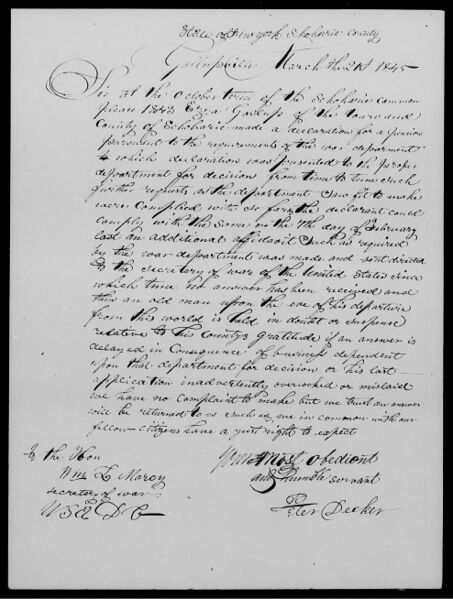 State of New york Schoharie County
Gallupville March the 21st 1845
Sir at the October term of the Schoharie common
pleas 1843 Ezra Gallup of the town and
County of Schoharie made a declaration for a pension
pursuant to the requirements of the war department
to which declaration was presented to the proper
department for decision from time to time such
further requests as the department saw fit to make
were complied with so far the declarant could
comply with the same on the 7th day of February
last an additional affidavit such as required
by the war department was made and sent directed
to the secretary of war of the United States since
which time no answer has been received and
thus an old man upon the eve of his departure
from this world is held in doubt or suspense
relative to his Countys Gratitude if an answer is
delayed in Consequence of business dependent
upon that department for decision or his last
application inadvertently overlooked or mislaid
we have no complaint to make but we trust an answer
will be returned to us such as we in common with our
fellow-citizens have a just right to expect
To the Hon
Wm L Marcy
secretary of war
Your most obedient
and humble servant
Peter Decker